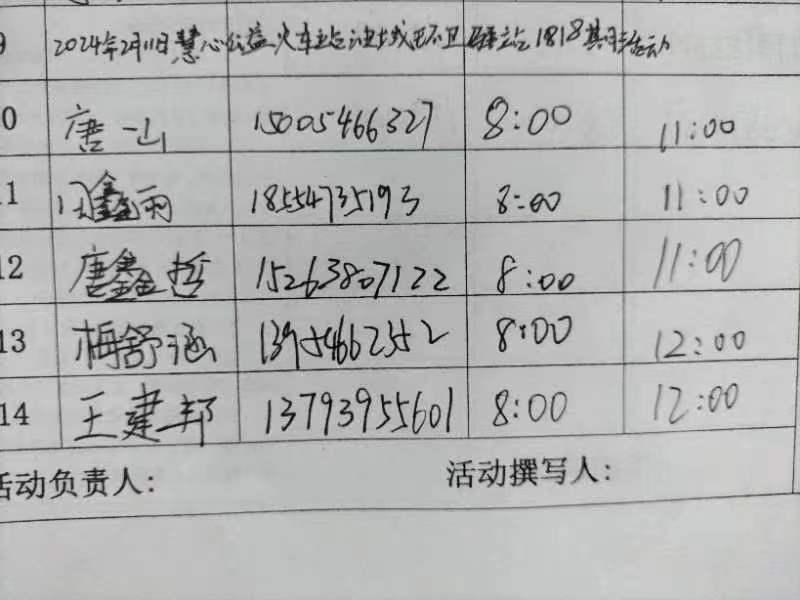 9 2024年2月11日慧心公益火车站城市环卫驿站1818期活动
0 唐一山 15005466327 8:00 11:00
11 闫鑫雨 18554735193 8:00 11:00
12 唐鑫哲 15263807122 8:00 11:00
13 梅舒涵 13954662352 8:00 12:00
14 王建邦 13793955601 8:00 12:00
活动负责人: 活动撰写人: